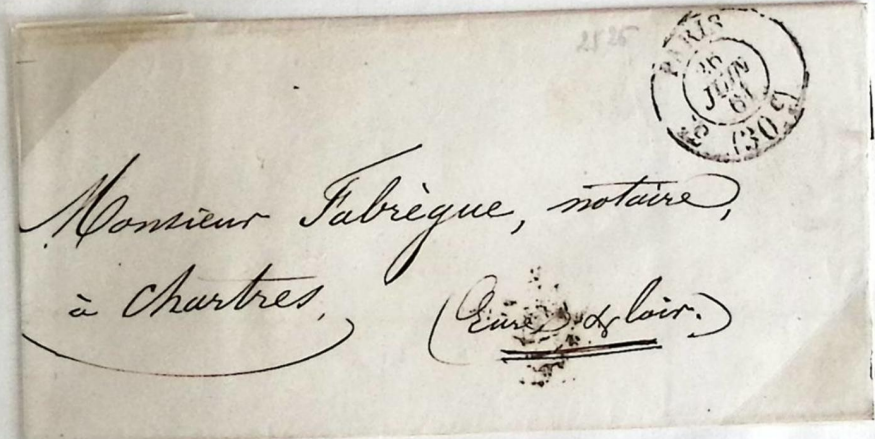 2525
PARIS
26
JUIN
61
(60)
Monsieur Fabrègue, notaire,
à Chartres,
(Eure & loir.)